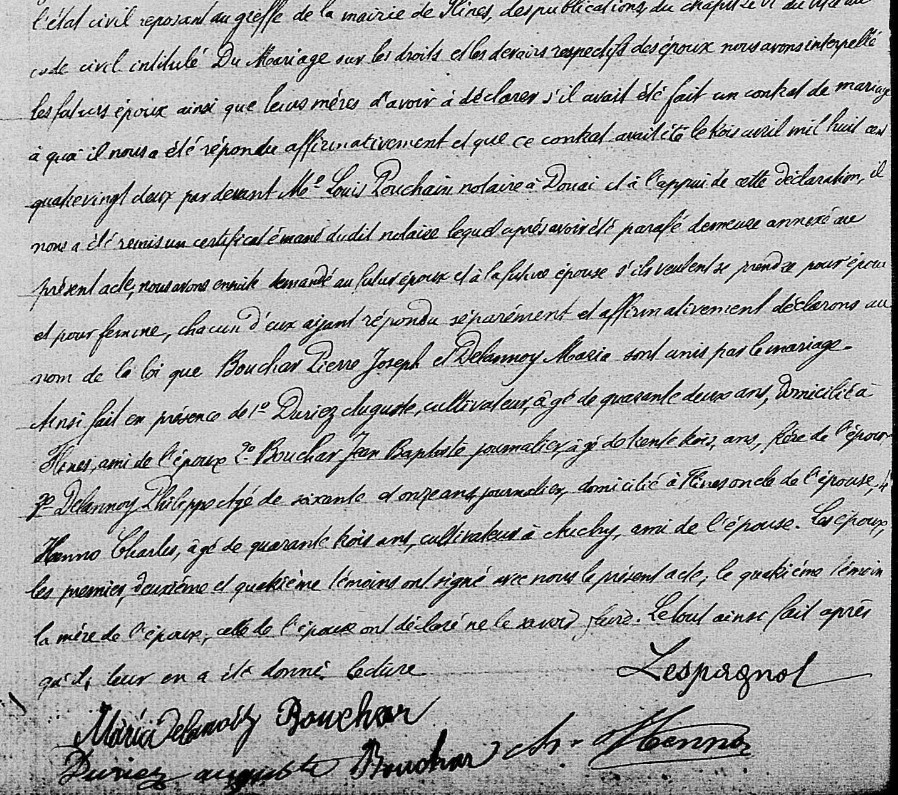 l'état civil reposant au greffe de la mairie de Flines, des publications, du chapitre VI du titre du
code civil intitulé Du Mariage sur les droits et les devoirs respectifs des époux nous avons interpellé
les futurs époux ainsi que leurs mères d'avoir à déclarer s'il avait été fait un contrat de mariage
à quoi il nous a été répondu affirmativement et que ce contrat avait été le trois avril mil huit cent
quatrevingt deux par devant Me Louis Pouchain notaire à Douai et à l'appui de cette déclaration, il
nous a été remis un certificat émané dudit notaire lequel après avoir été parafé demeure annexé au
présent acte, nous avons ensuite demandé au futur époux et à la future épouse s'ils veulent se prendre pour époux
et pour femme, chacun d'eux ayant répondu séparément et affirmativement déclarons au
nom de la loi que Bouchar Pierre Joseph et Delannoy Maria sont unis par le mariage.
Ainsi fait en présence de 1º Duriez Auguste, cultivateur, âgé de quarante deux ans, domicilié à
Flines, ami de l'époux 2º Bouchar Jean Baptiste journalier, âgé de trente trois, ans, frère de l'époux
3º Delannoy Philippe âgé de soixante et onze ans, journalier, domicilié à Flines oncle de l'épouse, 4
Henno Charles, âgé de quarante trois ans, cultivateur à Auchy, ami de l'épouse. Les époux,
les premier, deuxième et quatrième témoins ont signé avec nous le présent acte, le quatrième témoin
la mère de l'époux, celle de l'époux ont déclaré ne le savoir faire. Le tout ainsi fait après
qu'il, leur en a été donné lecture
Lespagnol
Maria Delannoÿ Bouchar
Duriez auguste Bouchar ch. Henno